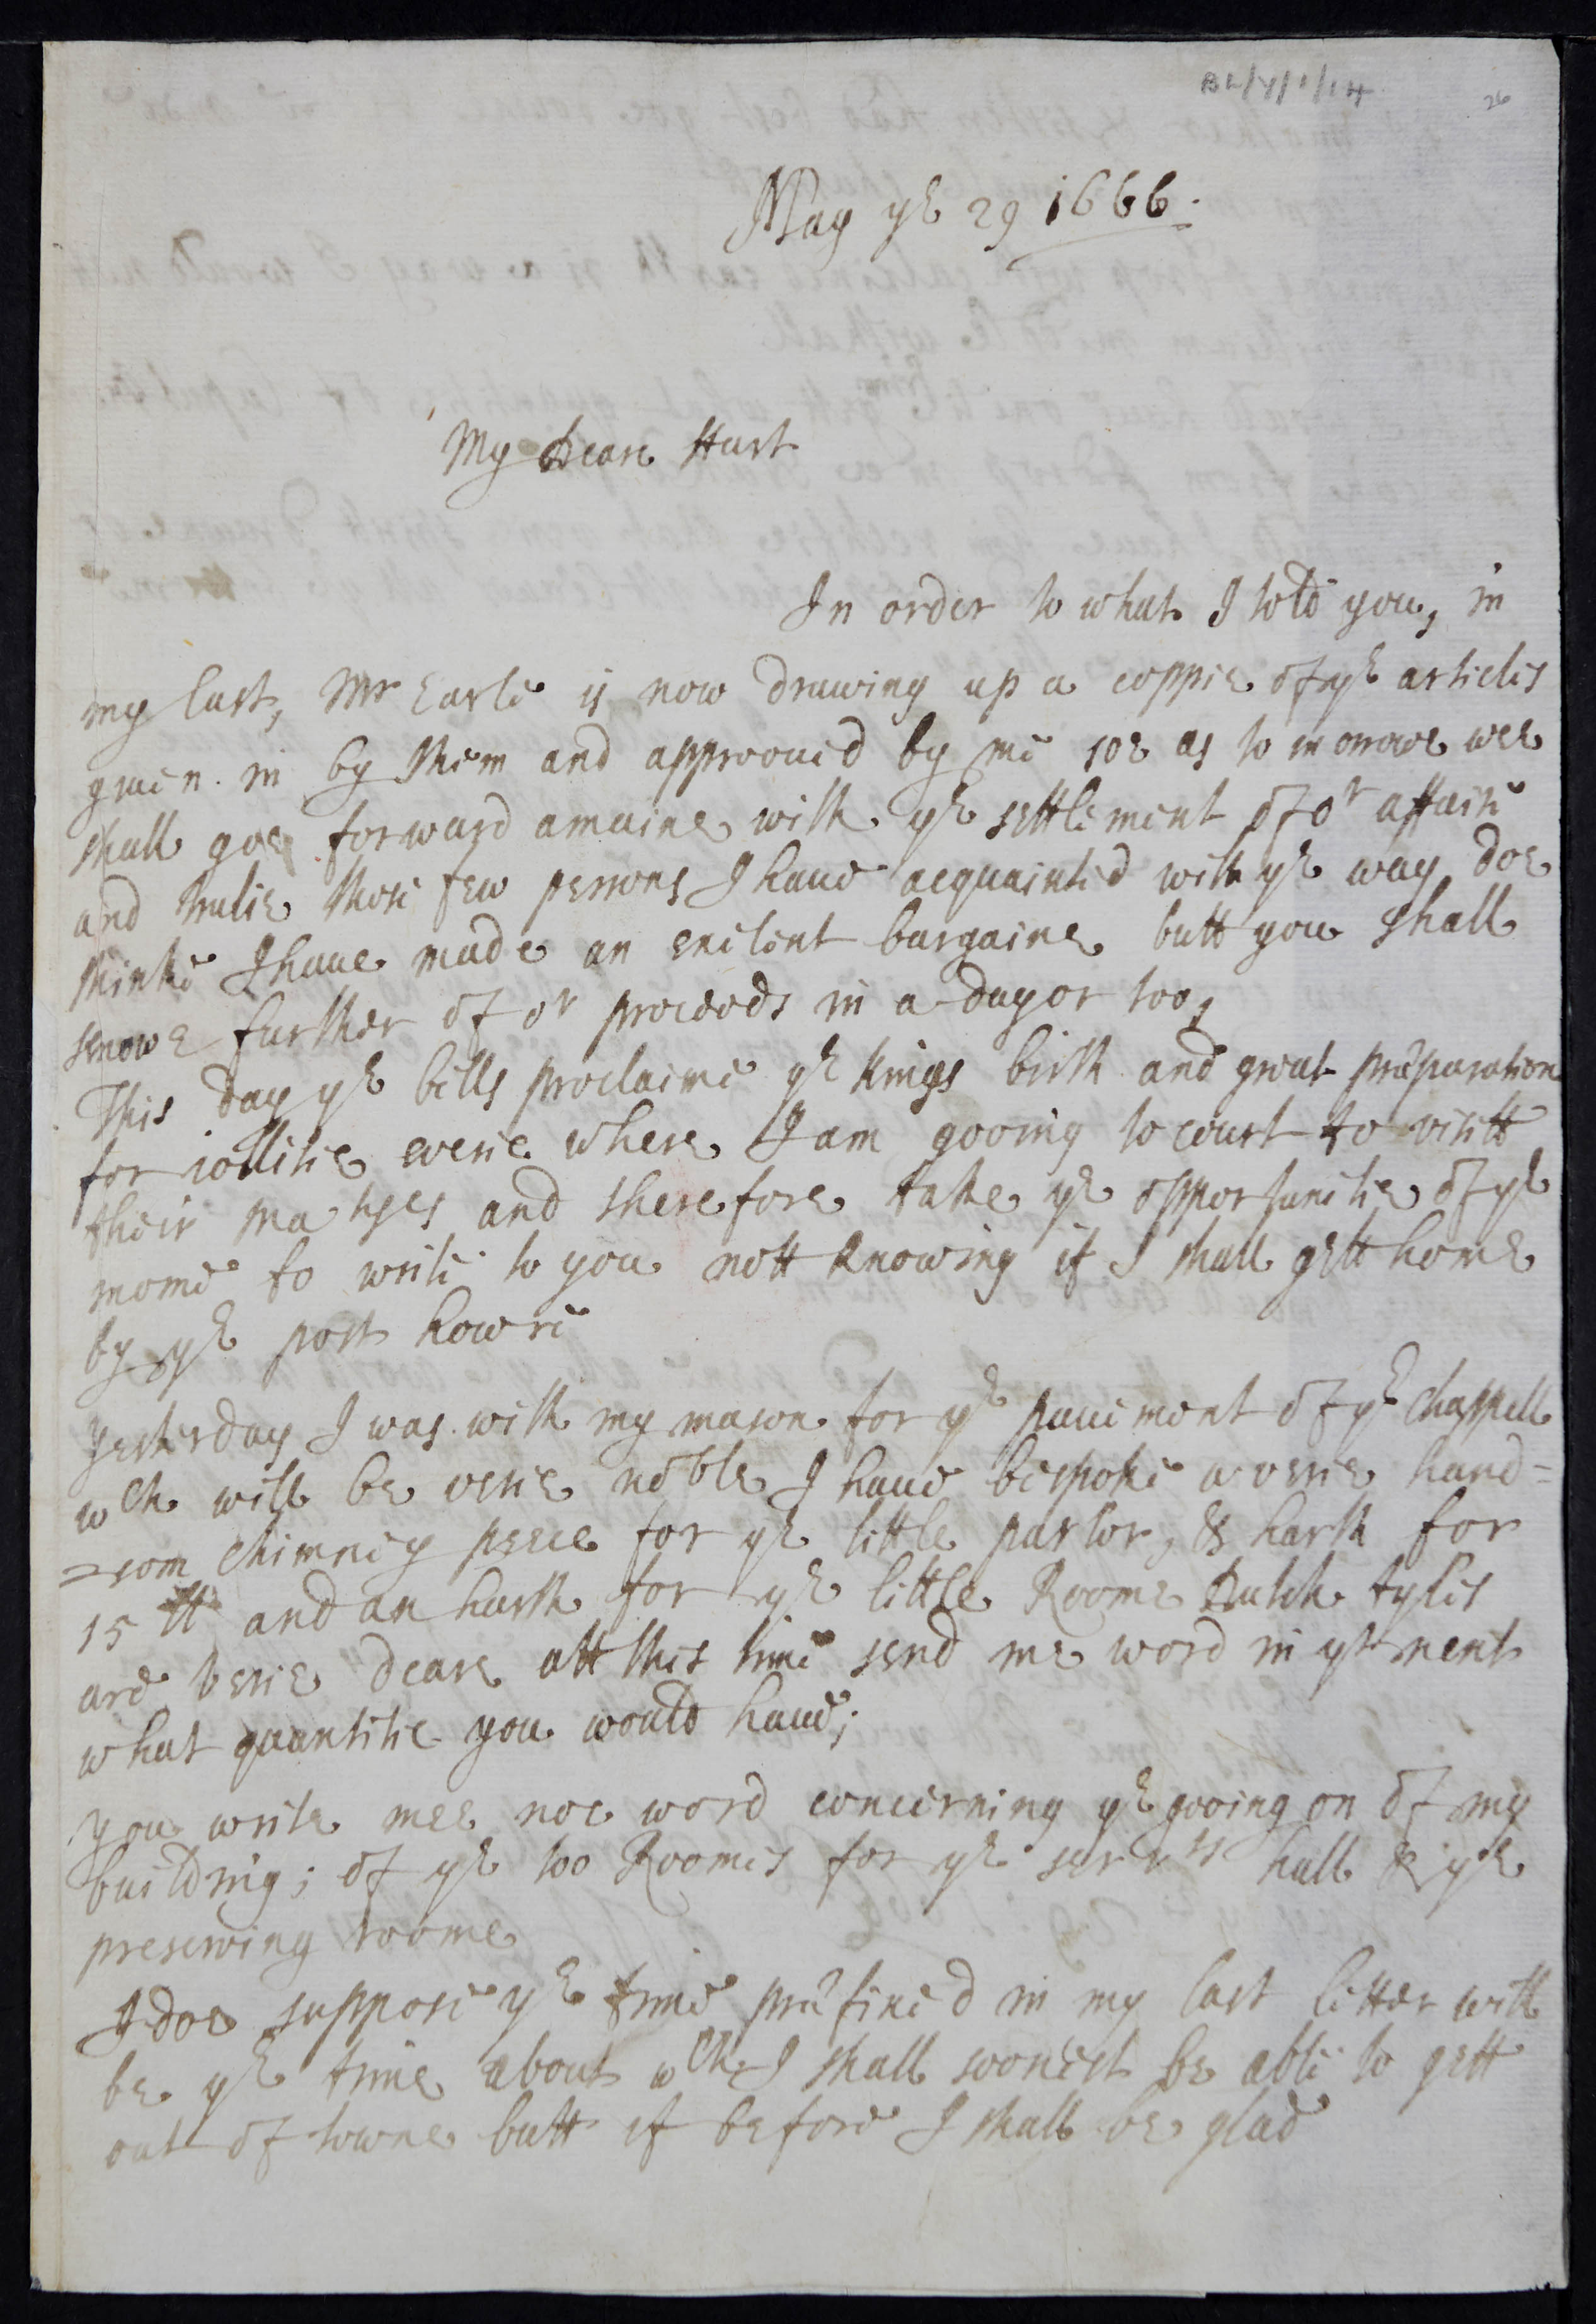 BL/Y/1/14
26
May ye 29 1666.
My Deare Hart
In order to what I told you, in
my last, Mr Earle is now drawing up a coppie of ye articles
given in by them and approoued by me soe as to morrowe wee
shall goe forward amaine with ye settlement of or affaire
and trulie those few persons I haue acquainted with ye way doe
thinke I haue made an exelent bargaine butt you shall
knowe further of or proceeds in a day or too,
This day ye bells proclaime ye kings birth and great præparation
for iollitie everie where I am gooing to court to visitt
their matyes and therefore take ye opportunitie of ye
morne to write to you nott knowing if I shall gett home
by ye post howre
yesterday I was with my mason for ye pauement of ye Chappell
wch will be verie noble I haue bespoke a verie hand=
=som chimney peece for ye little parlor, & harth for
15 ll and an harth for ye little Roome Dutch tyles
are verie deare att this time send me word in yr next
what quantitie you would haue;
you write mee noe word concerning ye gooing on of my
building; of ye too Roomes for ye servts hall & ye
preserving roome
I doe suppose ye time præfixed in my last letter will
be ye time about wch I shall soonest be able to gett
out of towne butt if before I shall be glad